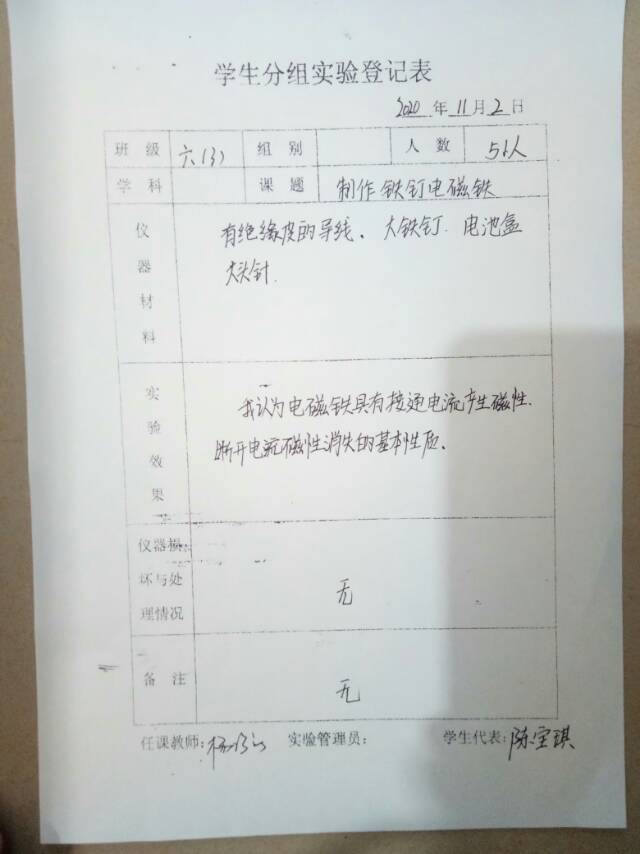 学生分组实验登记表
2020 年 11 月 2 日
班级 六(3) 组别 人数 51人
学科 课题 制作铁钉电磁铁
仪器材料 有绝缘皮的导线、大铁钉、电池盒
大头针.
实验效果 我认为电磁铁具有接通电流产生磁性.
断开电流磁性消失的基本性质。
仪器损
坏与处
理情况 无
备注 无
任课教师: 杨 实验管理员: 学生代表: 陈宝琪